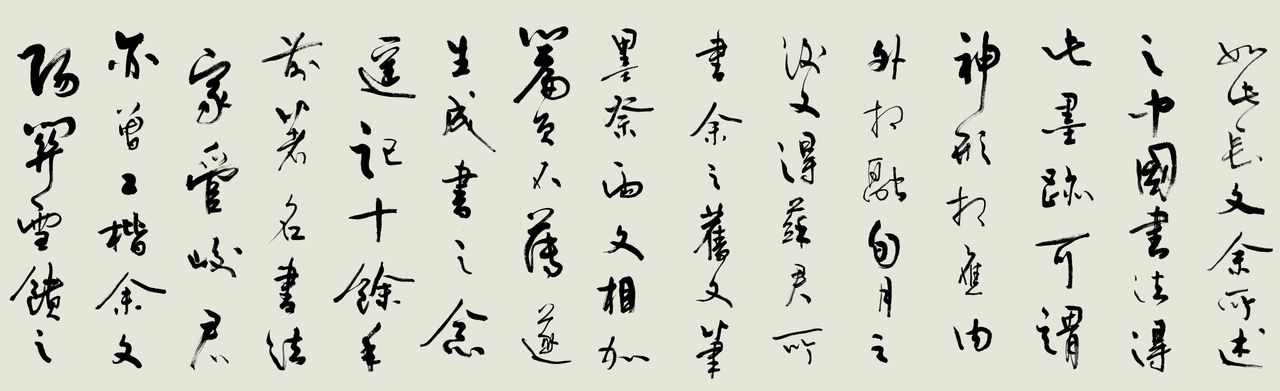 如此長文余所述
之中國書法得
此墨跡可謂
神形相應内
外相融旬月之
後又得蘇君所
書余之舊文筆
墨祭兩文相加
篇頁不薄遂
生成書之念
還記十餘年
前著名書法
家管峻君
亦曾工楷余文
陽關雪饋之